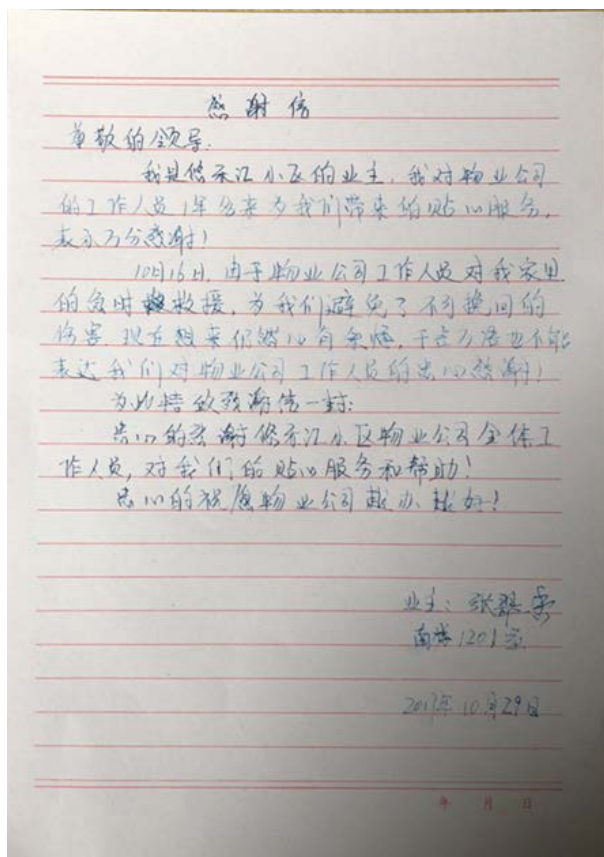 感谢信
尊敬的领导:
我是 小区的业主,我对物业公司
的工作人员1年多来为我们带来的贴心服务,
表示万分感谢!
10月16日,由于物业公司工作人员对我家里
的急时救援,为我们避免了不可挽回的
伤害 现在想来仍然心有余悸,千言万语也不能
表达我们对物业公司工作人员的忠心感谢!
为此特致感谢信一封:
忠心的感谢 小区物业公司全体工
作人员,对我们的贴心服务和帮助!
忠心的祝愿物业公司越办越好!
业主:张
南 1201室
2017年10月29日
年 月 日